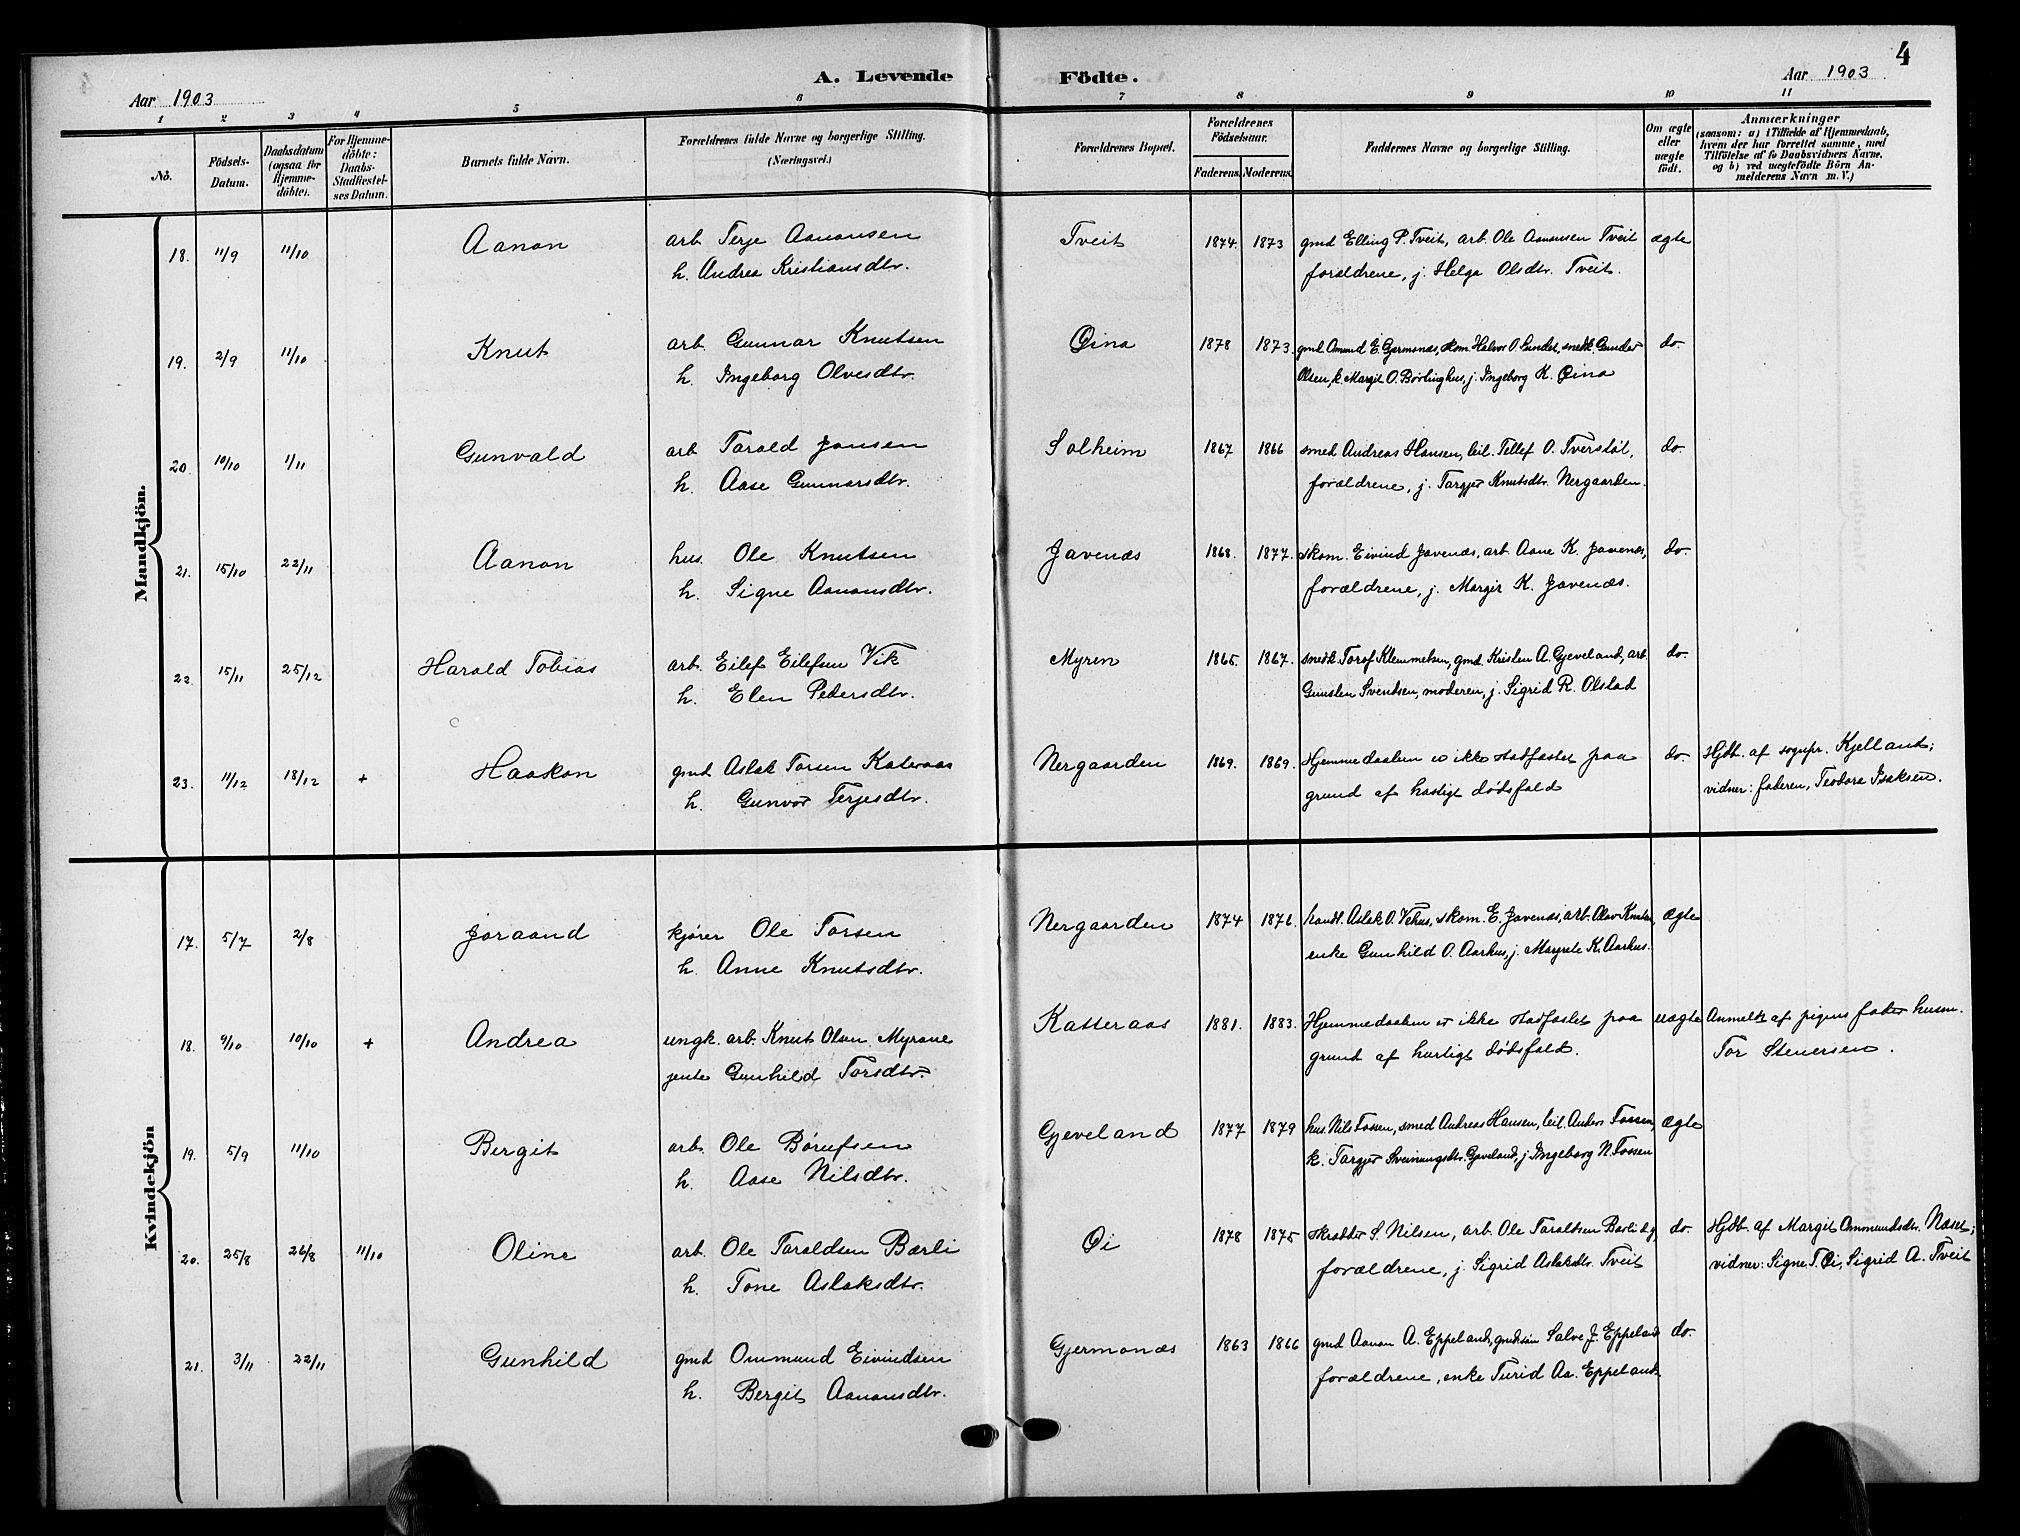 4
A. Levende Födte.
Aar 1903 Aar 1903
1 2 3 4 5 6 7 8 9 10 11
No. Födsels-Datum. Daabsdatum (ogsaa for Hjemme-döbte). For Hjemme-döbte: Daabs-Stadfæstel-ses Datum. Barnets fulde Navn. Forældrenes fulde Navne og borgerlige Stilling. (Næringsvei.) Forældrenes Bopæl. Forældrenes Födselsaar. Faderens. Moderens. Faddernes Navne og borgerlige Stilling. Om ægte eller uægte født. Anmærkninger (saasom: a) i Tilfælde af Hjemmedaab, hvem der har forrettet samme, med Tilföielse af to Daabsvidners Navne, og b) ved uægtefödte Börn An-melderens Navn m. V.)
Mandkjön.
18. 11/9 11/10 Aanon arb. Terje Aanonsen Tveit 1874. 1873 gmd Elling P. Tveit, arb. Ole Aanonsen Tveit ægte
h. Andrea Kristiansdtr. forældrene, j. Helga Olsdtr. Tveit.
19. 2/9 11/10 Knut arb. Gunnar Knutsen Øina 1878 1873. gmd. Omund E. Gjermonæs, skom. Halvor O. Lundet, snedk. Gunder do.
h. Ingeborg Olvesdtr. Olsen, k. Margit O. Børlinghus, j. Ingeborg K. Øina
20. 10/10 1/11 Gunvald arb. Tarald Jensen Solheim 1867 1866 smed Andreas Hansen, leil. Tellef O. Tverstøl, do.
h. Aase Gunnarsdtr. forældrene, j. Targjer Knutsdtr. Nergaarden.
21. 15/10 22/11 Aanon hus. Ole Knutsen Javenæs 1868. 1877. skom. Eivind Javenæs, arb. Aane K. Javenæs, do.
h. Signe Aanonsdtr. forældrene, j. Margit K. Javenæs.
22. 15/11 25/12 Harald Tobias arb. Eilef Eilefsen Vik Myren 1865. 1867. snedk. Torof Klemmetsen, gmd. Kristen A. Gjeveland, arb. do.
h. Elen Petersdtr. Gunsten Svendsen, moderen, j. Sigrid R. Olstad
23. 11/12 18/12 + Haakon gmd Aslak Torsen Kateraas Nergaarden 1869. 1869. Hjemmedaaben er ikke stadfæstet paa do. Hjdb. af sognepr. Kjelland;
h. Gunvor Terjesdtr. grund af hastigt dødsfald vidner: faderen, Teodora Isaksen.
Kvindekjön
17. 5/7 2/8 Joraand kjører Ole Torsen Nergaarden 1874 1876. handl. Aslak O. Vehus, skom. E. Javenæs, arb. Olav Knutsen, ægte
h. Anne Knutsdtr. enke Gunhild O. Aarhus, j. Margrete K. Aarhus.
18. 9/10 10/10 + Andrea ungk. arb. Knut Olsen Myrane Katteraas 1881. 1883. Hjemmedaaben er ikke stadfæstet paa uægte Anmeldt af pigens fader husm.
jente Gunhild Torsdtr. grund af hurtigt dødsfald. Tor Stenersen.
19. 5/9 11/10 Bergit arb. Ole Børufsen Gjeveland 1877 1879 hus. Nils Fossen, smed Andreas Hansen, leil. Anders Fossen, ægte
h. Aase Nilsdtr. k. Targjer Sveinungsdtr. Gjeveland, j. Ingeborg N. Fossen
20. 25/8 26/8 11/10 Oline arb. Ole Taraldsen Bærli Øi 1878 1875 skrædder S. Nilsen, arb. Ole Taraldsen Bærli og do. Hjdb. af Margit Ommundsdtr. Næset;
h. Tone Aslaksdtr. forældrene, j. Sigrid Aslaksdtr. Tveit vidner: Signe T. Øi, Sigrid A. Tveit
21. 3/11 22/11 Gunhild gmd Ommund Eivindsen Gjermonæs 1863 1866 gmd Aanon A. Eppeland, gmdsøn Salve J. Eppeland do.
h. Bergit Aanonsdtr. forældrene, enke Turid Aa. Eppeland.